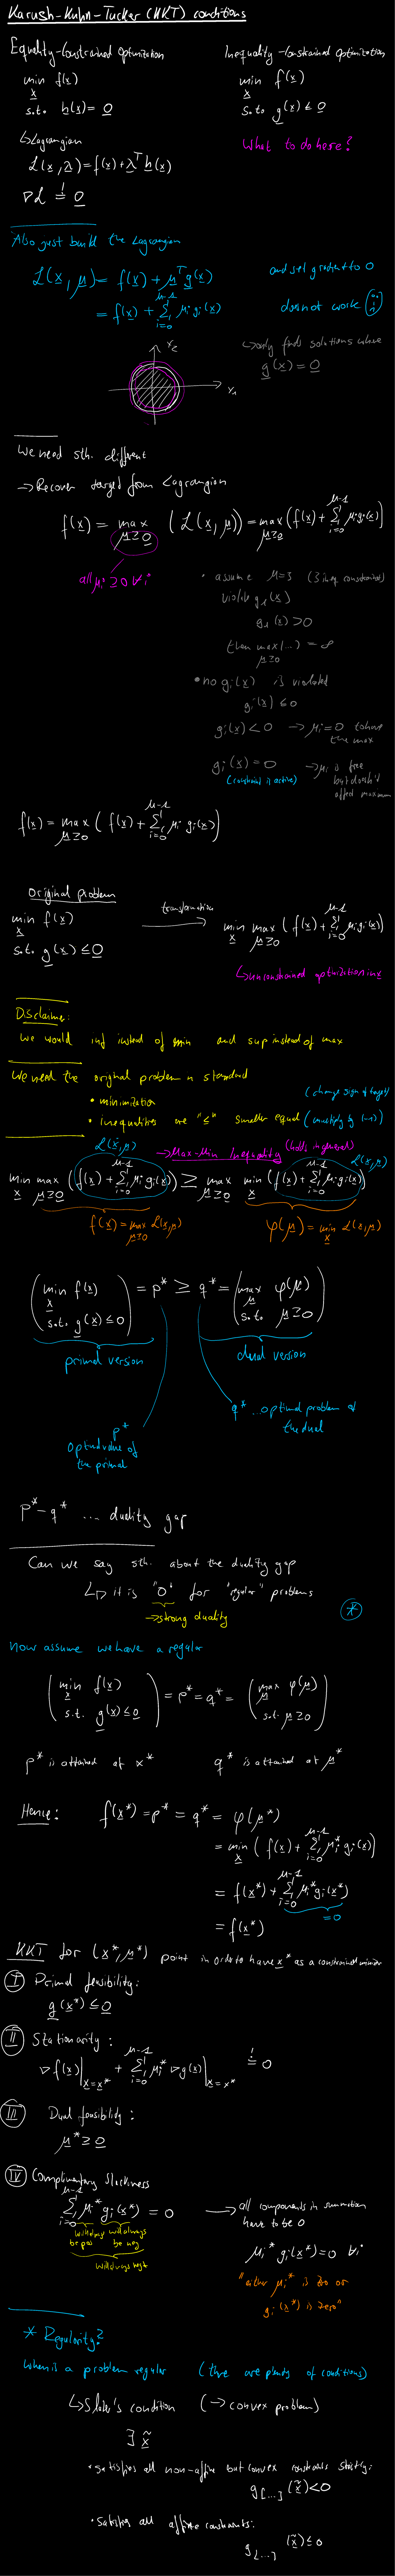 Karush-Kuhn-Tucker (KKT) conditions
Equality-constrained Optimization
min f(x)
x
s.t. h(x) = 0
↳ Lagrangian
L(x, λ) = f(x) + λᵀ h(x)
∇L =! 0
Inequality-constrained Optimization
min f(x)
x
s.t. g(x) ≤ 0
What to do here?
Also just build the Lagrangian
L(x, μ) = f(x) + μᵀ g(x)
= f(x) + Σ_{i=0}^{M-1} μi gi(x)
and set gradient to 0
does not work
↳ only finds solutions where
g(x) = 0
x2
x1
We need sth. different
→ Recover target from Lagrangian
f(x) = max_{μ≥0} (L(x, μ)) = max_{μ≥0} (f(x) + Σ_{i=0}^{M-1} μi gi(x))
all μi ≥ 0 ∀i
• assume M=3 (3 ineq constraints)
violate g1(x)
g1(x) > 0
then max_{μ≥0} (...) = ∞
• no gi(x) is violated
gi(x) ≤ 0
gi(x) < 0 → μi = 0 to have
the max
gi(x) = 0 → μi is free
(constraint is active)
but doesn't
affect maximum
f(x) = max_{μ≥0} (f(x) + Σ_{i=0}^{M-1} μi gi(x))
Original problem
min f(x)
x
s.t. g(x) ≤ 0
transformation
min_x max_{μ≥0} (f(x) + Σ_{i=0}^{M-1} μi gi(x))
↳ unconstrained optimization in x
Disclaimer:
We would inf instead of min and sup instead of max
We need the original problem in standard
• minimization
(change sign of target)
• inequalities are "≤" smaller equal (multiply by (-1))
L(x, μ)
→ Max-Min Inequality (holds in general)
L(x, μ)
min_x max_{μ≥0} (f(x) + Σ_{i=0}^{M-1} μi gi(x)) ≥ max_{μ≥0} min_x (f(x) + Σ_{i=0}^{M-1} μi gi(x))
f(x) = max_{μ≥0} L(x, μ)
φ(μ) = min_x L(x, μ)
(min_x f(x) s.t. g(x) ≤ 0) = p* ≥ q* = (max_μ φ(μ) s.t. μ ≥ 0)
primal version
dual version
p*
optimal value of
the primal
q* ... optimal problem of
the dual
p* - q* ... duality gap
Can we say sth. about the duality gap
↳ it is "0" for "regular" problems
→ strong duality
*
Now assume we have a regular
(min_x f(x) s.t. g(x) ≤ 0) = p* = q* = (max_μ φ(μ) s.t. μ ≥ 0)
p* is attained at x*
q* is attained at μ*
Hence: f(x*) = p* = q* = φ(μ*)
= min_x (f(x) + Σ_{i=0}^{M-1} μi* gi(x))
= f(x*) + Σ_{i=0}^{M-1} μi* gi(x*)
= 0
= f(x*)
KKT for (x*, μ*) point in order to have x* as a constrained minimizer
I Primal feasibility:
g(x*) ≤ 0
II Stationarity:
∇f(x)|x=x* + Σ_{i=0}^{M-1} μi* ∇g(x)|x=x* =! 0
III Dual feasibility:
μ* ≥ 0
IV Complimentary Slackness
Σ_{i=0}^{M-1} μi* gi(x*) = 0
will always be pos
will always be neg
will always neg
→ all components in summation
have to be 0
μi* gi(x*) = 0 ∀i
"either μi* is zero or
gi(x*) is zero"
* Regularity?
When is a problem regular (there are plenty of conditions)
↳ Slater's condition (→ convex problem)
∃ x̃
• satisfies all non-affine but convex constraints strictly:
g[...](x̃) < 0
• satisfies all affine constraints:
g[...](x̃) ≤ 0